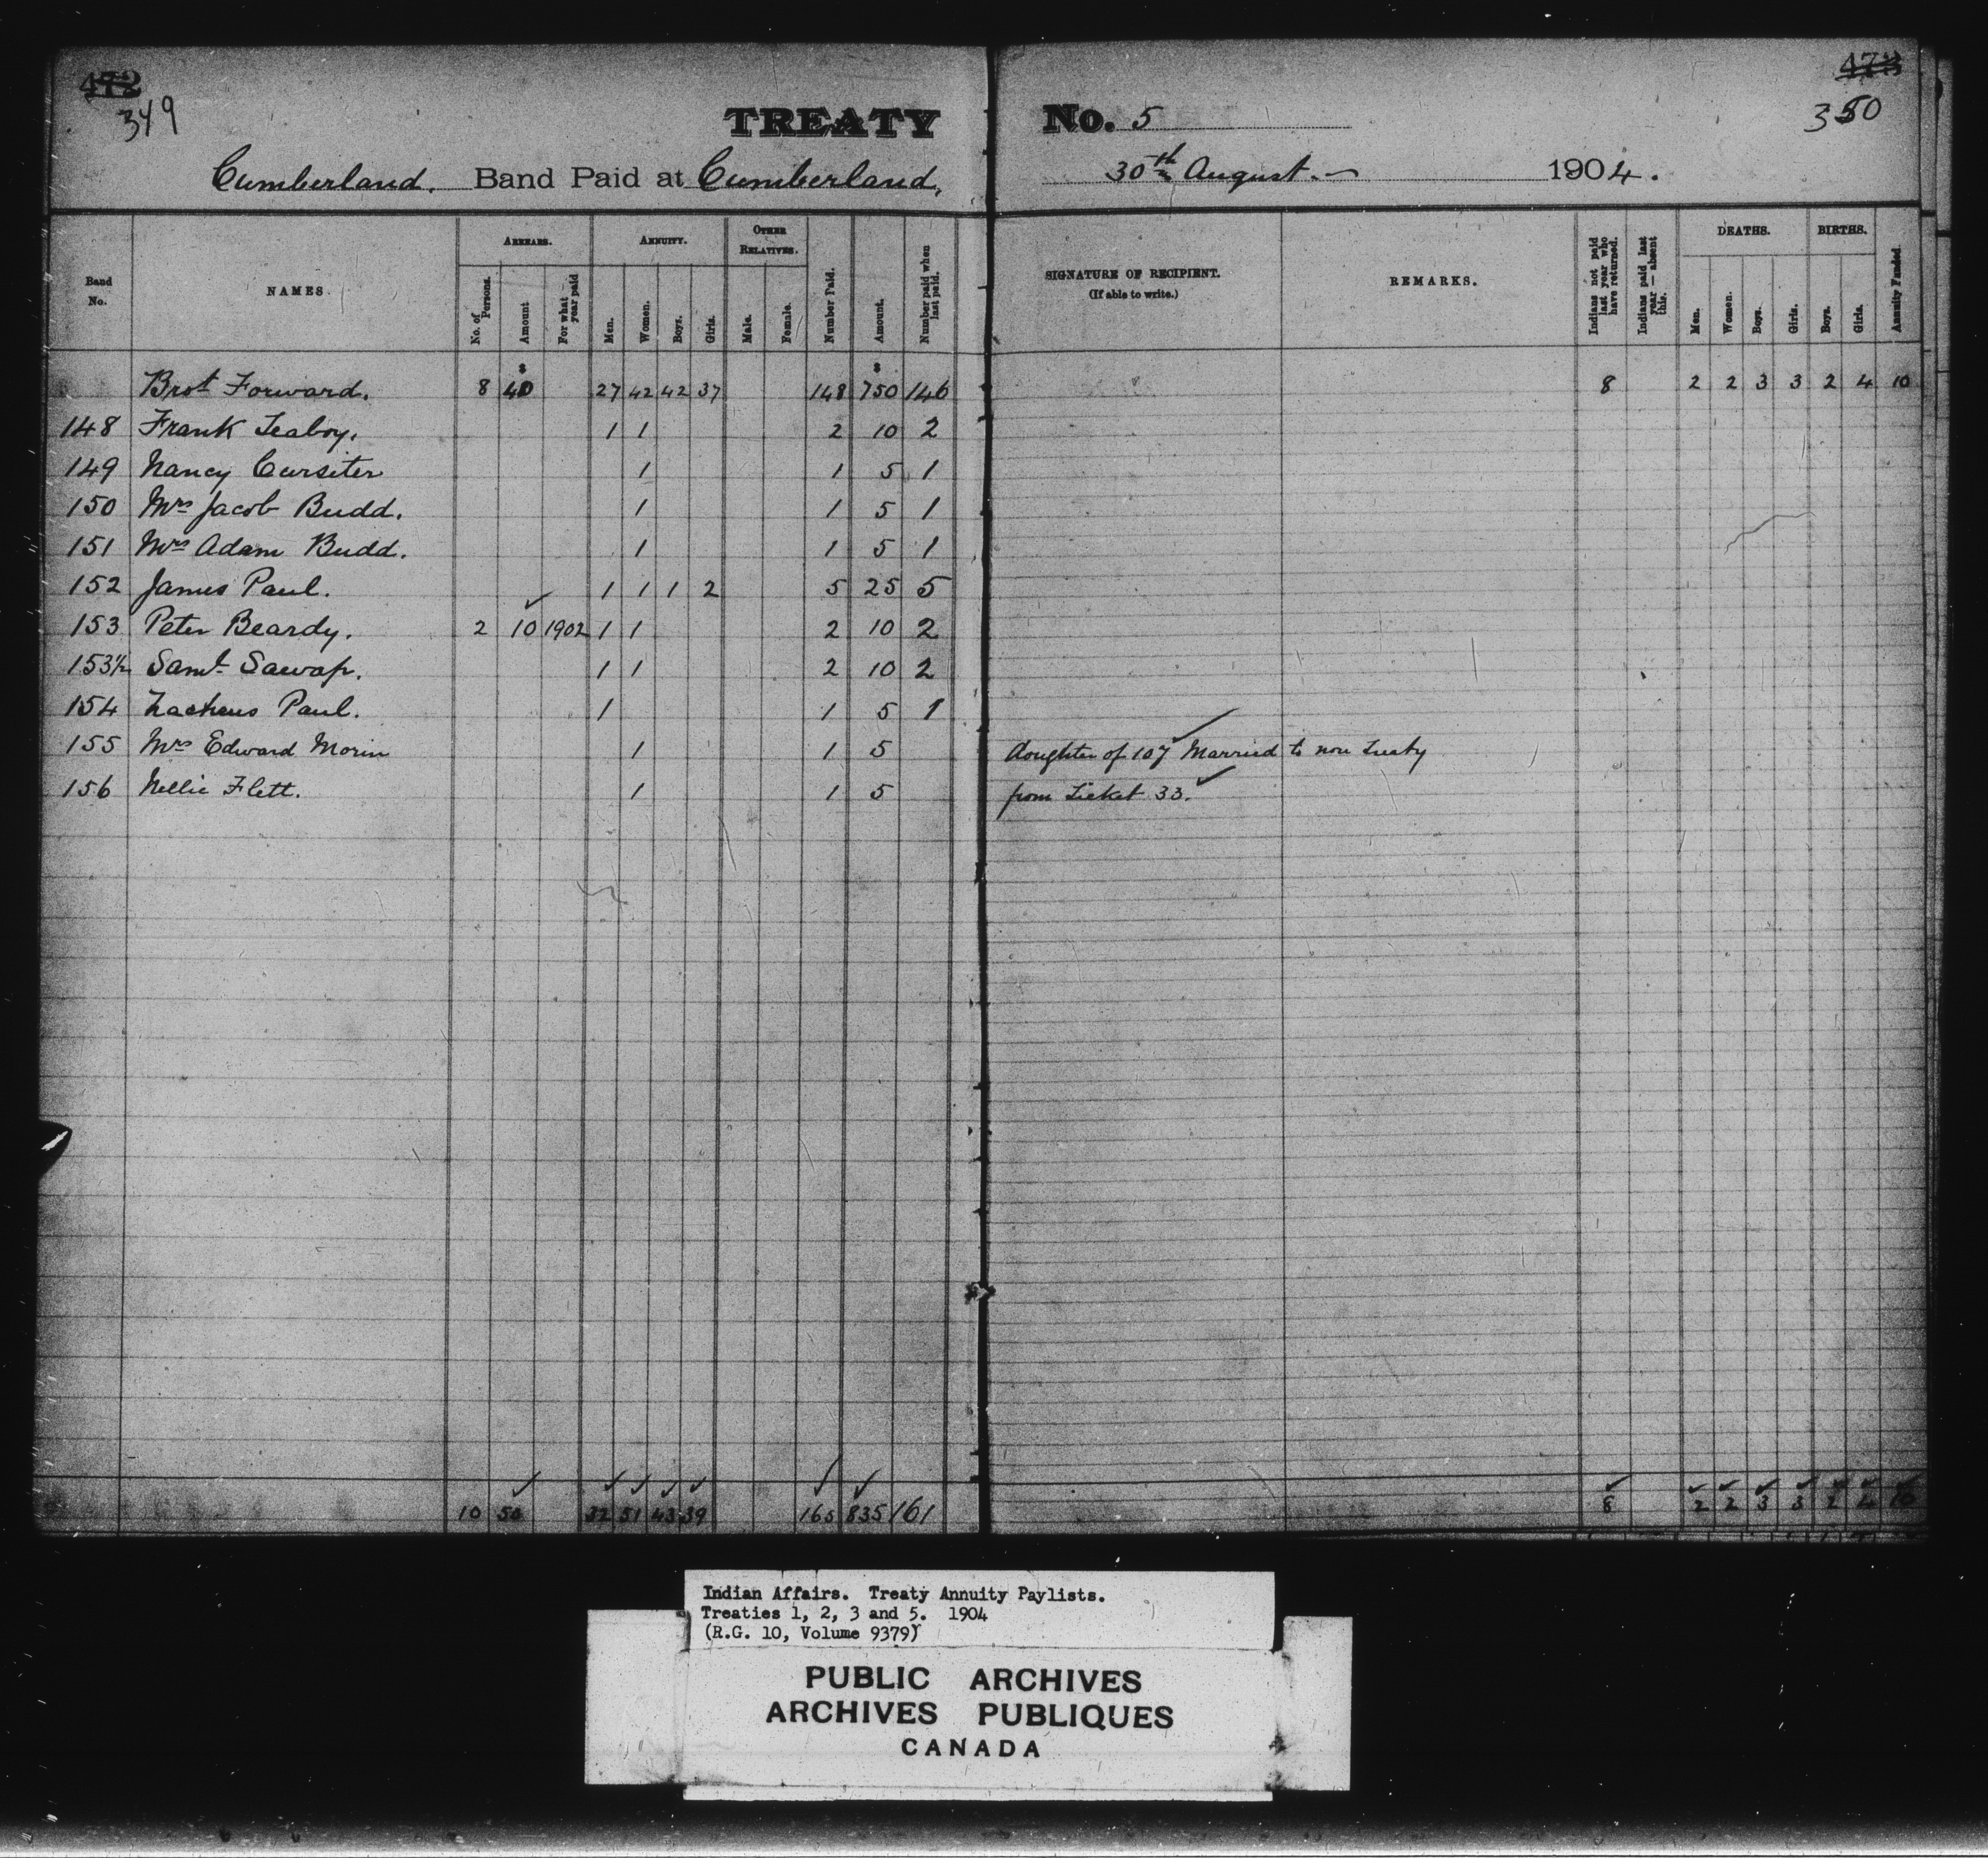 472 473
349 350
TREATY No. 5
Cumberland. Band Paid at Cumberland, 30th August. 1904.
Band No. NAMES. ARREARS. No. of Persons. Amount For what year paid ANNUITY. Men. Women. Boys. Girls. OTHER RELATIVES. Male. Female. Number Paid. Amount. Number paid when last paid. SIGNATURE OF RECIPIENT. (If able to write.) REMARKS. Indians not paid last year who have returned. Indians paid last year — absent this. DEATHS. Men. Women. Boys. Girls. BIRTHS. Boys. Girls. Annuity Funded.
$ $
Brot Forward. 8 40 27 42 42 37 148 750 146 8 2 2 3 3 2 4 10
148 Frank Teaboy. 1 1 2 10 2
149 Nancy Cursiter 1 1 5 1
150 Mrs Jacob Budd. 1 1 5 1
151 Mrs Adam Budd. 1 1 5 1
152 James Paul. 1 1 1 2 5 25 5
153 Peter Beardy. 2 10 1902 1 1 2 10 2
153½ Saml Sawap. 1 1 2 10 2
154 Zacheus Paul. 1 1 5 1
155 Mrs Edward Morin 1 1 5 daughter of 107 Married to non Treaty
156 Nellie Flett. 1 1 5 from Ticket 33.
10 50 32 51 43 39 165 835 161 8 2 2 3 3 2 4 10
Indian Affairs. Treaty Annuity Paylists.
Treaties 1, 2, 3 and 5. 1904
(R.G. 10, Volume 9379)
PUBLIC ARCHIVES
ARCHIVES PUBLIQUES
CANADA